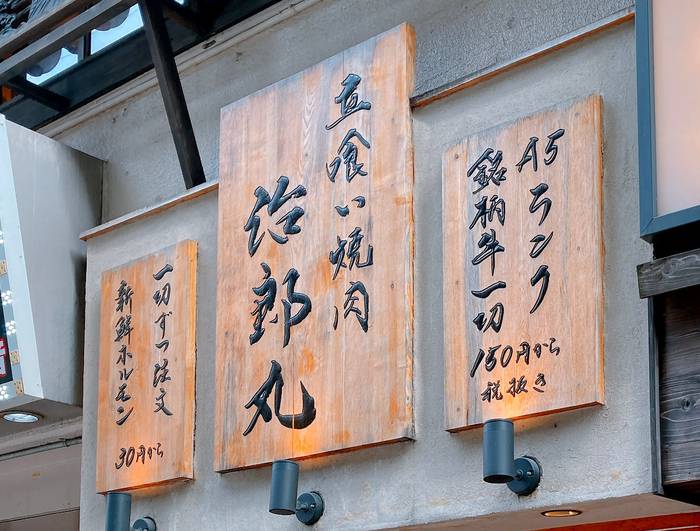 A5ランク
銘柄牛一切
150円から
税抜き
立喰い焼肉
治郎丸
一切ずつ注文
新鮮ホルモン
30円から